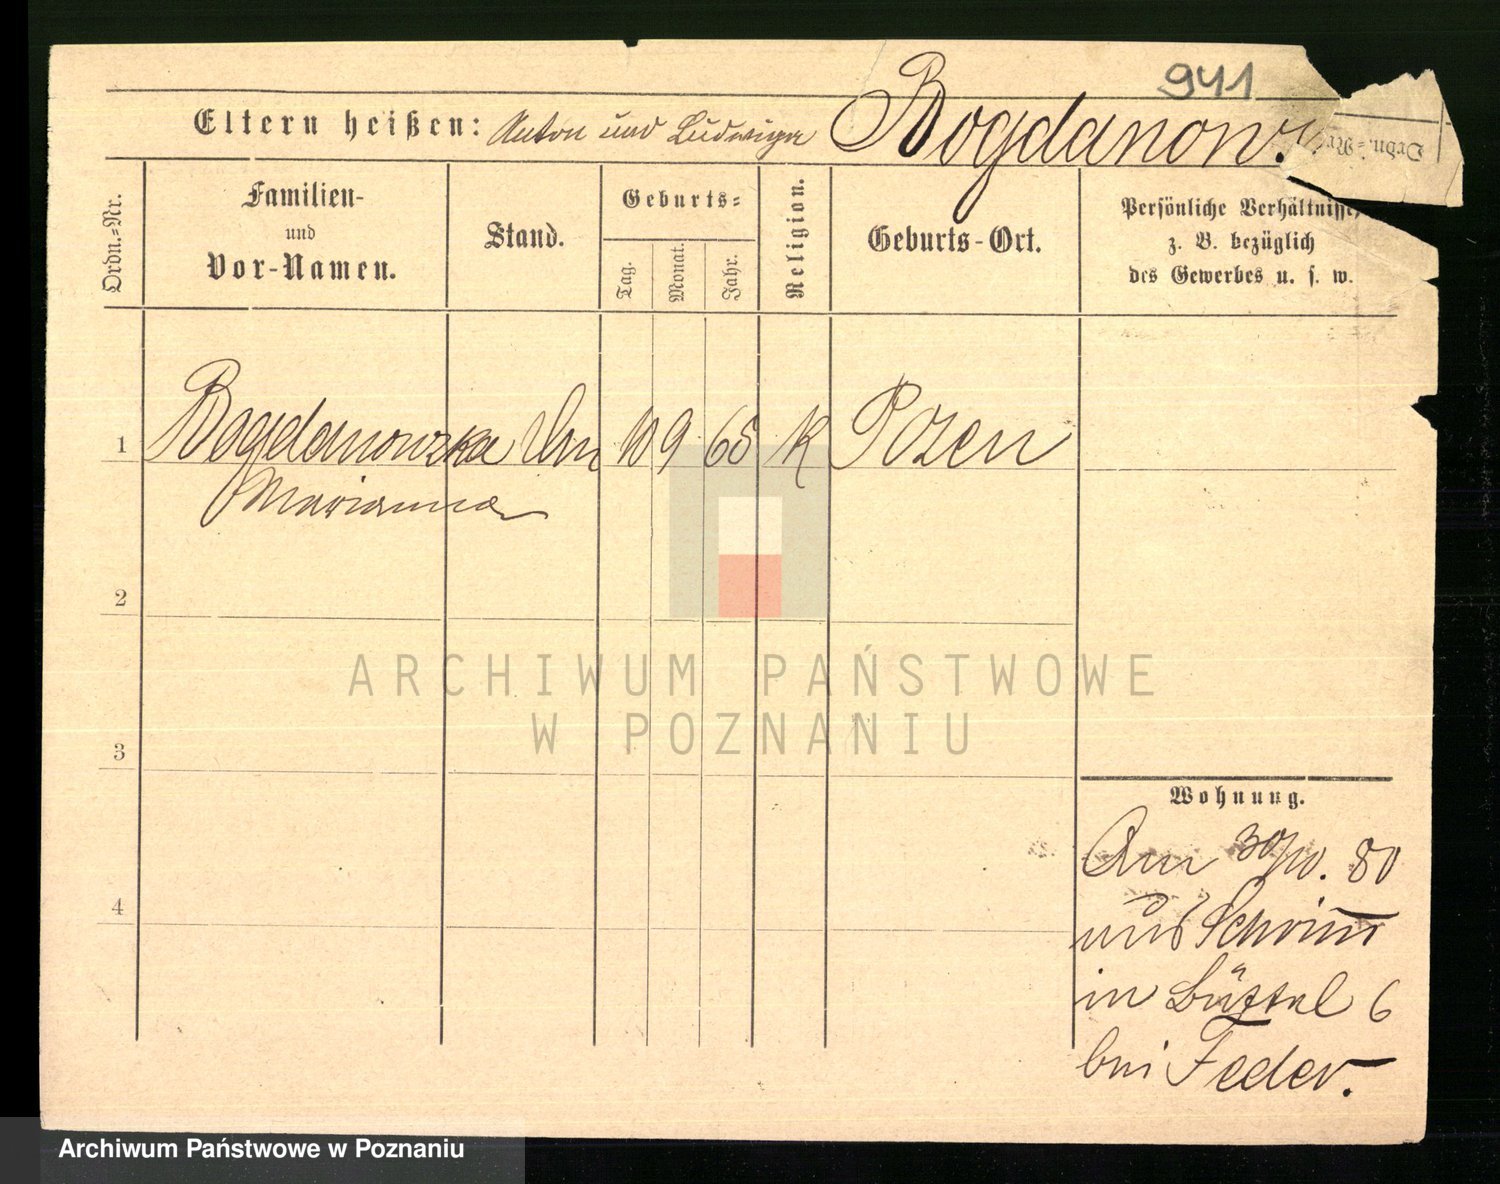 941
Eltern heißen: Anton und Ludwiga Bogdanow
Ordn.=Nr.
Ordn.=Nr.
Familien-
und
Vor-Namen.
Stand.
Geburts=
Tag.
Monat.
Jahr.
Religion.
Geburts-Ort.
Persönliche Verhältnisse,
z. B. bezüglich
des Gewerbes u. s. w.
1 Bogdanowska 10 9 65 K Pozen
Marianna
2
3
4
ARCHIWUM PAŃSTWOWE
W POZNANIU
Wohnung.
Am 30/10. 80
aus Schrimm
in Büttel 6
bei Feder.
Archiwum Państwowe w Poznaniu